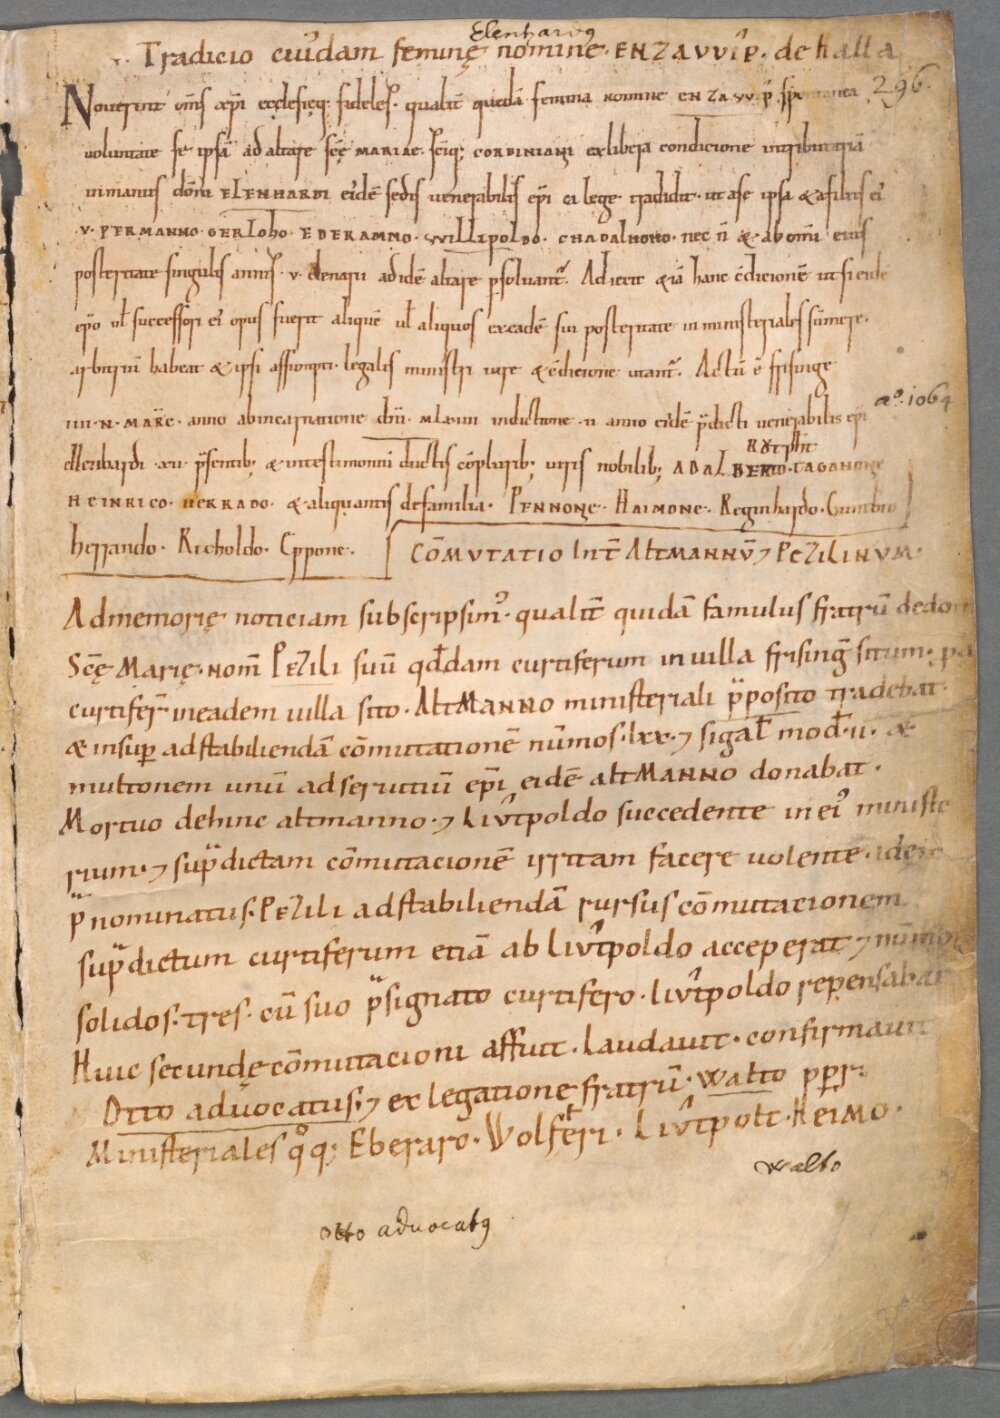 Elenhardus
Tradicio cuiˀdam feminę nomine · ENZAVVIP̂ · de halla
296.
Nouerint om̄s xp̄i ęcclesięq; fideles · qualit̄ quedā femina nomine ENZAVVIP̂ spontanea
uoluntate se ipsā ad altare sc̄ę MARIAE · sc̄iq; CORBINIANI ex libera condicione in tributariā
in manus dom̄i ELENHARDI eiˀdē sedis uenerabilis ep̄i ea lege tradidit · ut a se ipsa & a filiis eiˀ
·v· PERMANNO · GERLOHO · EBERAMMO · WILLIPOLDO · CHADALHOHO · nec n̄ & ab om̄i eius
posteritate singulis annis · v · denarii ad idē altare p̱soluant᷑. Adiecit & iā hanc c̄dicionē ut si eidē
ep̄o ul̄ successori eiˀ opus fuerit aliquē ul̄ aliquos ex eadē sui posteritate in ministeriales sumere ·
arbitriū habeat & ipsi assumpti · legalis ministri iure & c̄dicione utant᷑. Actū ē frisinge
IIII · N · MARC̄ · anno ab incarnatione dn̄i · MLXIIII indictione · II anno eiˀdē p̄dicti uenerabilis ep̄i
aº. 1064
ellenhardi · XII p̄sentib; & in testimoniū ductis cōplurib; uiris nobilib; ADALBERTO · TAGANONE
HEINRICO · HERRADO · & aliquantis de familia · PENNONE · HAIMONE · Reginhardo · Gumbto
herrando · Richoldo · Eppone ·
CŌMUTATIO INT̄ ALTMANNŪ ⁊ PEZILINUM ·
Ad memorię noticiam subscripsimˀ · qualit̄ quidā famulus fratrū de domo
Sc̄ę Marię · nom̄ PEZILI suū qd̄dam curtiferum in uilla frisinḡ situm · p
curtifer̄ in eadem uilla sito · ALTMANNO ministeriali p̄posito tradebat ·
& insup̱ ad stabiliendā cōmutationē nūmos · lxx · ⁊ sigal̄ mod̄ · ii · &
multonem unū ad seruitiū ep̄i eidē altMANNO donabat ·
Mortuo dehinc altmanno · ⁊ Liut̂poldo succedente in eiˀ ministe
rium · ⁊ sup̄dictam cōmutacionē irritam facere uolente · idem
p̄nominatus · PEZILI ad stabiliendā rursus cōmutacionem
sup̄dictum curtiferum etiā ab Liut̂poldo acceperat ⁊
solidos · tres · cū suo p̄signato curtifero · liut̂poldo repensabat
Huic secundę cōmutacioni affuit · laudauit · confirmauit
Otto aduocatus · ⁊ ex legatione fratrū · Walto pp̱r ·
Ministeriales qºq; Eberaro · Wolftˀeri · Liut̂polt · HEIMO ·
walto
otto advocatus